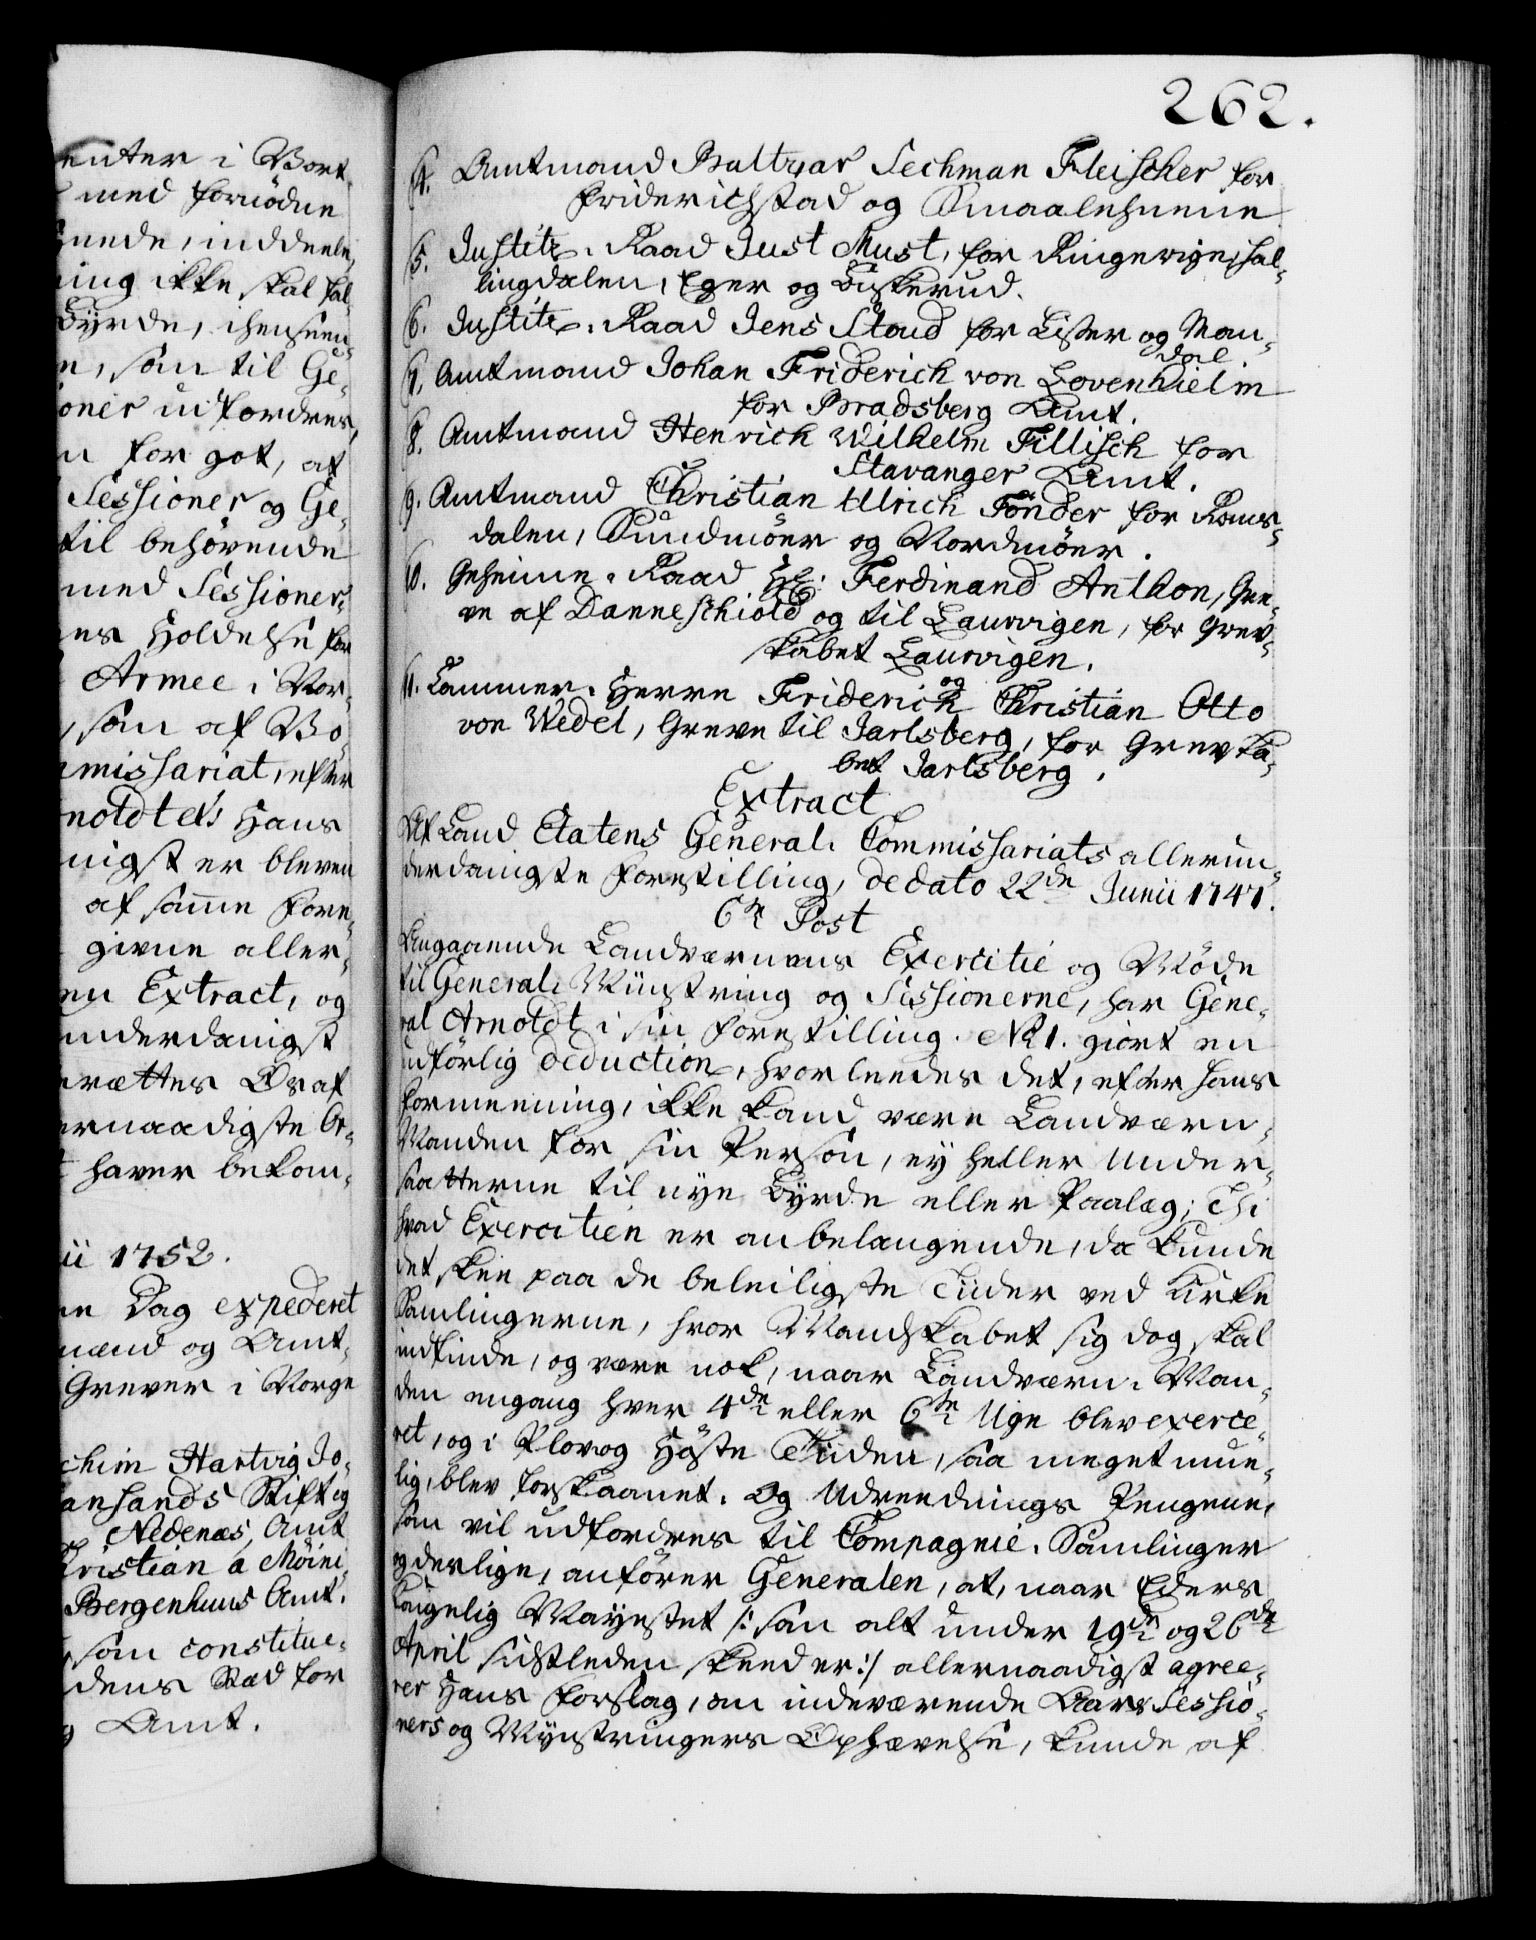 enter i Vort
med fornödne
hende, inddeele,
ning ikke skal fal
Byrde, i henseen-
n, som til Ge-
oner udfordres,
n for got, at
Sessioner og Ge-
til behörende
med Sessioner-
nes Holdelse for
Armee i Nor-
, som af Vo-
mmissariat, efter
noldtels Hans
nigst er bleven
af samme Fore-
givne aller-
en Extract, og
underdanigst
rættes Bref
ernaadigste Or-
haver bekom-
ii 1752.
ne Dag expederet
mænd og Amt-
Grever i Norge
chim Hartvig Jo-
ansands Stift og
Nedenæs, Amt
hristian a Möini-
Bergenhuus Amt.
, som constitue-
dens Sted for
g Amt.
262.
4. Amtmand Baltzar Sechman Fleischer for
Friderichstad og Smaalehnene
5. Justitz-Raad Just Must, for Ringerige, Hal-
lingdalen, Eger og Buskerud.
6. Justitz-Raad Jens Stoud for Lister og Man-
dal.
7. Amtmand Johan Friderich von Lovenhielm
for Bradsberg Amt.
8. Amtmand Henrich Wilhelm Tillisch for
Stavanger Amt.
9. Amtmand Christian Ulrich Tönder for Roms-
dalen, Sundmöer og Nordmöer.
10. Geheime-Raad Hr. Ferdinand Anthon, Gre-
ve af Danneschiold og til Laurvigen, for Grev-
skabet Laurvigen.
11. Cammer-Herre Friderich og Christian Otto
von Wedel, Greve til Jarlsberg, for Grevska-
bet Jarlsberg.
Extract
Af Land Etatens General-Commissariats allerun-
derdanigste Forestilling, de dato 22de Junii 1747.
6te Post
Angaaende Landværnens Exercitie og Möde
til General-Münstring og Sessionerne, har Gene-
ral Arnoldt i sin Forestilling No 1. giort en
udförlig deduction, hvorleedes det, efter hans
Formeening, ikke kand være Landværn-
Manden for sin Person, ey heller Under-
saatterne til nye Byrde eller Paalæg; Thi
hvad Exercitien er anbelangende, da kunde
det skee paa de beleiligste Tiider ved Kirke
Samlingerne, hvor Mandskabet sig dog skal
indfinde, og være nok, naar Landværn-Man-
den engang hver 4de eller 6te Uge blev exerce-
ret, og i Plov og Höste Tiiden, saa meget mue-
lig, blev forskaanet. Og Udreednings Pengene,
som vil udfordres til Compagnie-Samlinger
og deslige, anförer Generalen, at, naar Eders
Kongelig Mayestet /: som alt under 19de og 26de
April sidstleden skeed er :/ allernaadigst agree-
rer Hans Forslag, om indeværende Aars Sessio-
ners og Mynstringers Ophævelse, kunde af